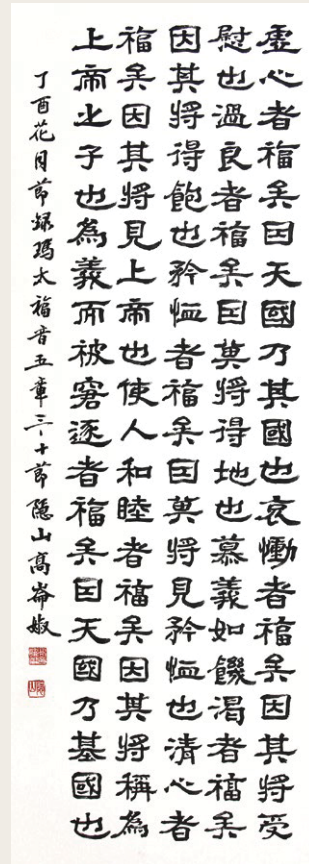 虛心者福矣因天國乃其國也哀慟者福矣因其將受
慰也溫良者福矣因其將得地也慕義如饑渴者福矣
因其將得飽也矜恤者福矣因其將見矜恤也清心者
福矣因其將見上帝也使人和睦者福矣因其將稱為
上帝之子也為義而被窘逐者福矣因天國乃其國也
丁酉花月節錄瑪太福音五章三~十節隱山高